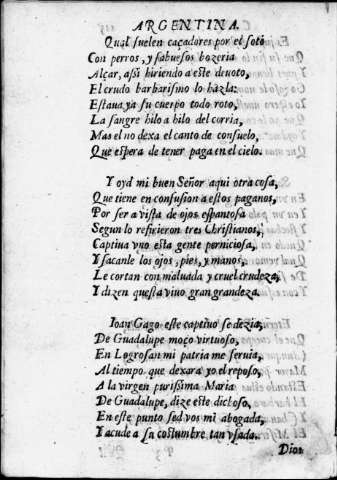 ARGENTINA.
Qual suelen caçadores por el soto
Con perros, y sabuesos bozeria
Alçar, asi hiriendo a este deuoto,
El crudo barbarismo lo hazla:
Estaua ya su cuerpo todo roto,
La sangre hilo a hilo del corria,
Mas el no dexa el canto de consuelo,
Que espera de tener paga en el cielo.
Y oyd mi buen Señor aqui otra cosa,
Que tiene en confusion a estos paganos,
Por ser a vista de ojos espantosa
Segun lo refirieron tres Christianos,
Captiua vno esta gente perniciosa,
Y sacanle los ojos, pies, y manos,
Le cortan con maluada y cruel crudeza,
Y dizen questa viuo gran grandeza.
Ioan Gago este captiuo se dezia,
De Guadalupe moço virtuoso,
En Logrosan mi patria me seruia,
Al tiempo que dexara yo el reposo,
A la virgen purissima Maria
De Guadalupe, dize este dichoso,
En este punto sed vos mi abogada,
Y acude a su costumbre tan vsada.
Dios